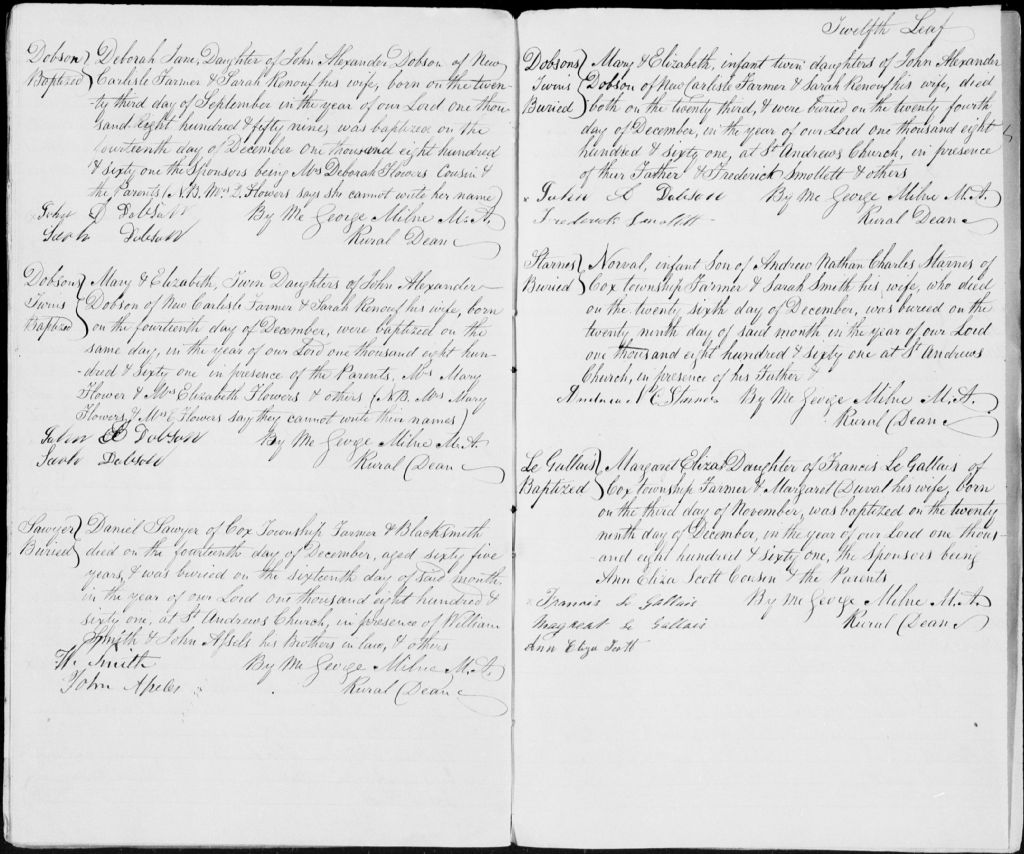 Dobson Baptized } Deborah Jane, Daughter of John Alexander Dobson of New
Carlisle Farmer & Sarah Renouf his wife, born on the twen-
ty third day of September in the year of our Lord one thou
sand eight hundred & fifty nine, was baptized on the
fourteenth day of December one thousand eight hundred
& sixty one the Sponsors being Mrs Deborah Flowers Cousin &
the Parents (N.B. Mrs D. Flowers says she cannot write her name)
John D Dobson By Me George Milne M.A.
Sarah Dobson Rural Dean
Dobsons Twins Baptized } Mary & Elizabeth, Twin Daughters of John Alexander
Dobson of New Carlisle Farmer & Sarah Renouf his wife, born
on the fourteenth day of December, were baptized on the
same day, in the year of our Lord one thousand eight hun-
-dred & sixty one in presence of the Parents, Mrs Mary
Flower & Mrs Elizabeth Flowers & others (N.B. Mrs Mary
Flowers & Mrs E Flowers say they cannot write their names)
John Dobson By Me George Milne M.A.
Sarah Dobson Rural Dean
Sawyer Buried } Daniel Sawyer of Cox Township Farmer & Blacksmith
died on the fourteenth day of December, aged sixty five
years, & was buried on the sixteenth day of said month
in the year of our Lord one thousand eight hundred &
sixty one, at St Andrews Church, in presence of William
Smith & John Apsels his Brothers in law, & others
W. Smith By Me George Milne M.A.
John Apeles Rural Dean
Twelfth Leaf
Dobsons Twins Buried } Mary & Elizabeth, infant twin daughters of John Alexander
Dobson of New Carlisle Farmer & Sarah Renouf his wife, died
both on the twenty third, & were buried on the twenty fourth
day of December, in the year of our Lord one thousand eight
hundred & sixty one, at St Andrews Church, in presence
of their Father & Frederick Smollett & others
John Dobson By Me George Milne M.A.
Frederick Smollett Rural Dean
Starnes Buried } Norval, infant Son of Andrew Nathan Charles Starnes of
Cox township Farmer & Sarah Smith his wife, who died
on the twenty sixth day of December, was buried on the
twenty ninth day of said month in the year of our Lord
one thousand eight hundred & sixty one at St Andrews
Church, in presence of his Father &
Andrew N C Starnes By Me George Milne M.A.
Rural Dean
Le Gallais Baptized } Margaret Eliza Daughter of Francis Le Gallais of
Cox township Farmer & Margaret Duval his wife, born
on the third day of November, was baptized on the twenty
ninth day of December, in the year of our Lord one thous-
-and eight hundred & sixty one, the Sponsors being
Ann Eliza Scott Cousen & the Parents
Francis Le Gallais By Me George Milne M.A.
Magreat Le Gallais Rural Dean
Ann Eliza Scott